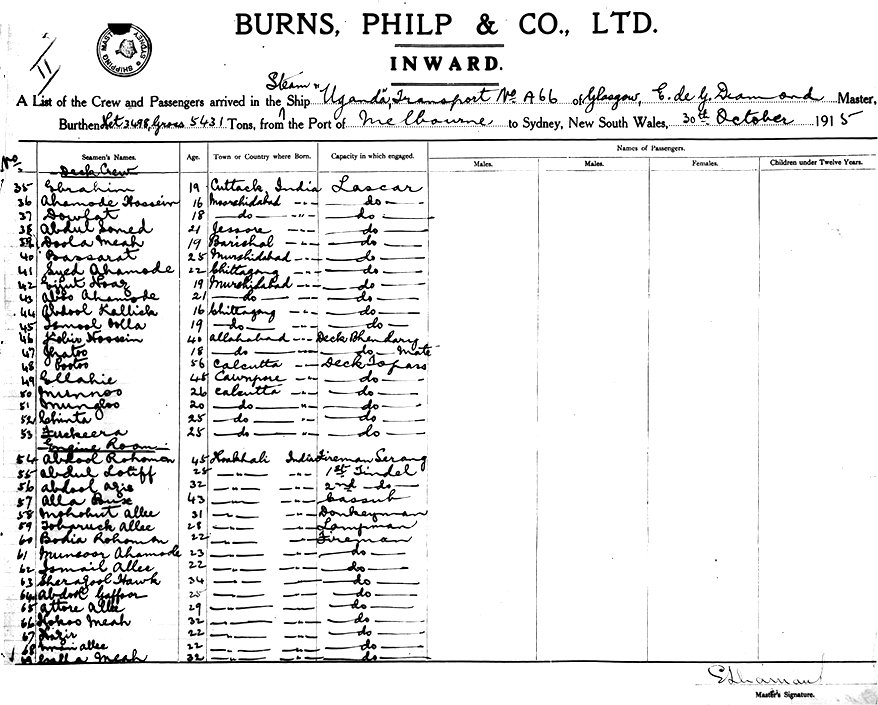 BURNS, PHILP & CO., LTD.
INWARD.
II
SHIPPING MASTER SYDNEY
A List of the Crew and Passengers arrived in the Steam Ship "Uganda", Transport No A66 of Glasgow, E. de G. Diamond Master,
Burthen Net 3498, Gross 5431 Tons, from the Port of Melbourne to Sydney, New South Wales, 30th October 1915
No. Seamen's Names. Age. Town or Country where Born. Capacity in which engaged. Names of Passengers.
Males. Males. Females. Children under Twelve Years.
Deck Crew
35 Ebrahim 19 Cuttack, India Lascar
36 Ahamode Hossein 16 Moorshidabad -"- do
37 Dowlat 18 do -"- do
38 Abdul Somed 21 Jessore -"- do
39 Doola Meah 19 Barishal -"- do
40 Bassarat 25 Murshidabad -"- do
41 Syed Ahamode 22 Chittagong -"- do
42 19 Murshidabad -"- do
43 Abbo Ahamode 21 do -"- do
44 Abdool Kallick 16 Chittagong -"- do
45 19 do -"- do
46 Kobir Hossein 40 Allahabad -"- Deck Bhendary
47 18 do -"- do Mate
48 Bootoo 56 Calcutta -"- Deck Topass
49 Ellahie 45 Cawnpore -"- do
50 Munnoo 26 Calcutta -"- do
51 Mungloo 20 do -"- do
52 Chinta 25 do -"- do
53 Fuckeera 25 do -"- do
Engine Room
54 Abdool Rohomon 45 Noakhali India Fireman Serang
55 Abdul Lotiff 25 -"- -"- 1st Tindel
56 Abdool Azis 32 -"- -"- 2nd do
57 Alla Bux 43 -"- -"- Cassub
58 Mohobut Allee 31 -"- -"- Donkeyman
59 Toboruck Allee 28 -"- -"- Lampman
60 Bodia Rohoman 22 -"- -"- Fireman
61 Munsoor Ahamode 23 -"- -"- do
62 Ismail Allee 22 -"- -"- do
63 Sheragool Hawk 34 -"- -"- do
64 Abdool Gaffoor 25 -"- -"- do
65 Attore Allee 29 -"- -"- do
66 Kokoo Meah 32 -"- -"- do
67 Nazir 22 -"- -"- do
68 Allee 22 -"- -"- do
69 Meah 32 -"- -"- do
Master's Signature.